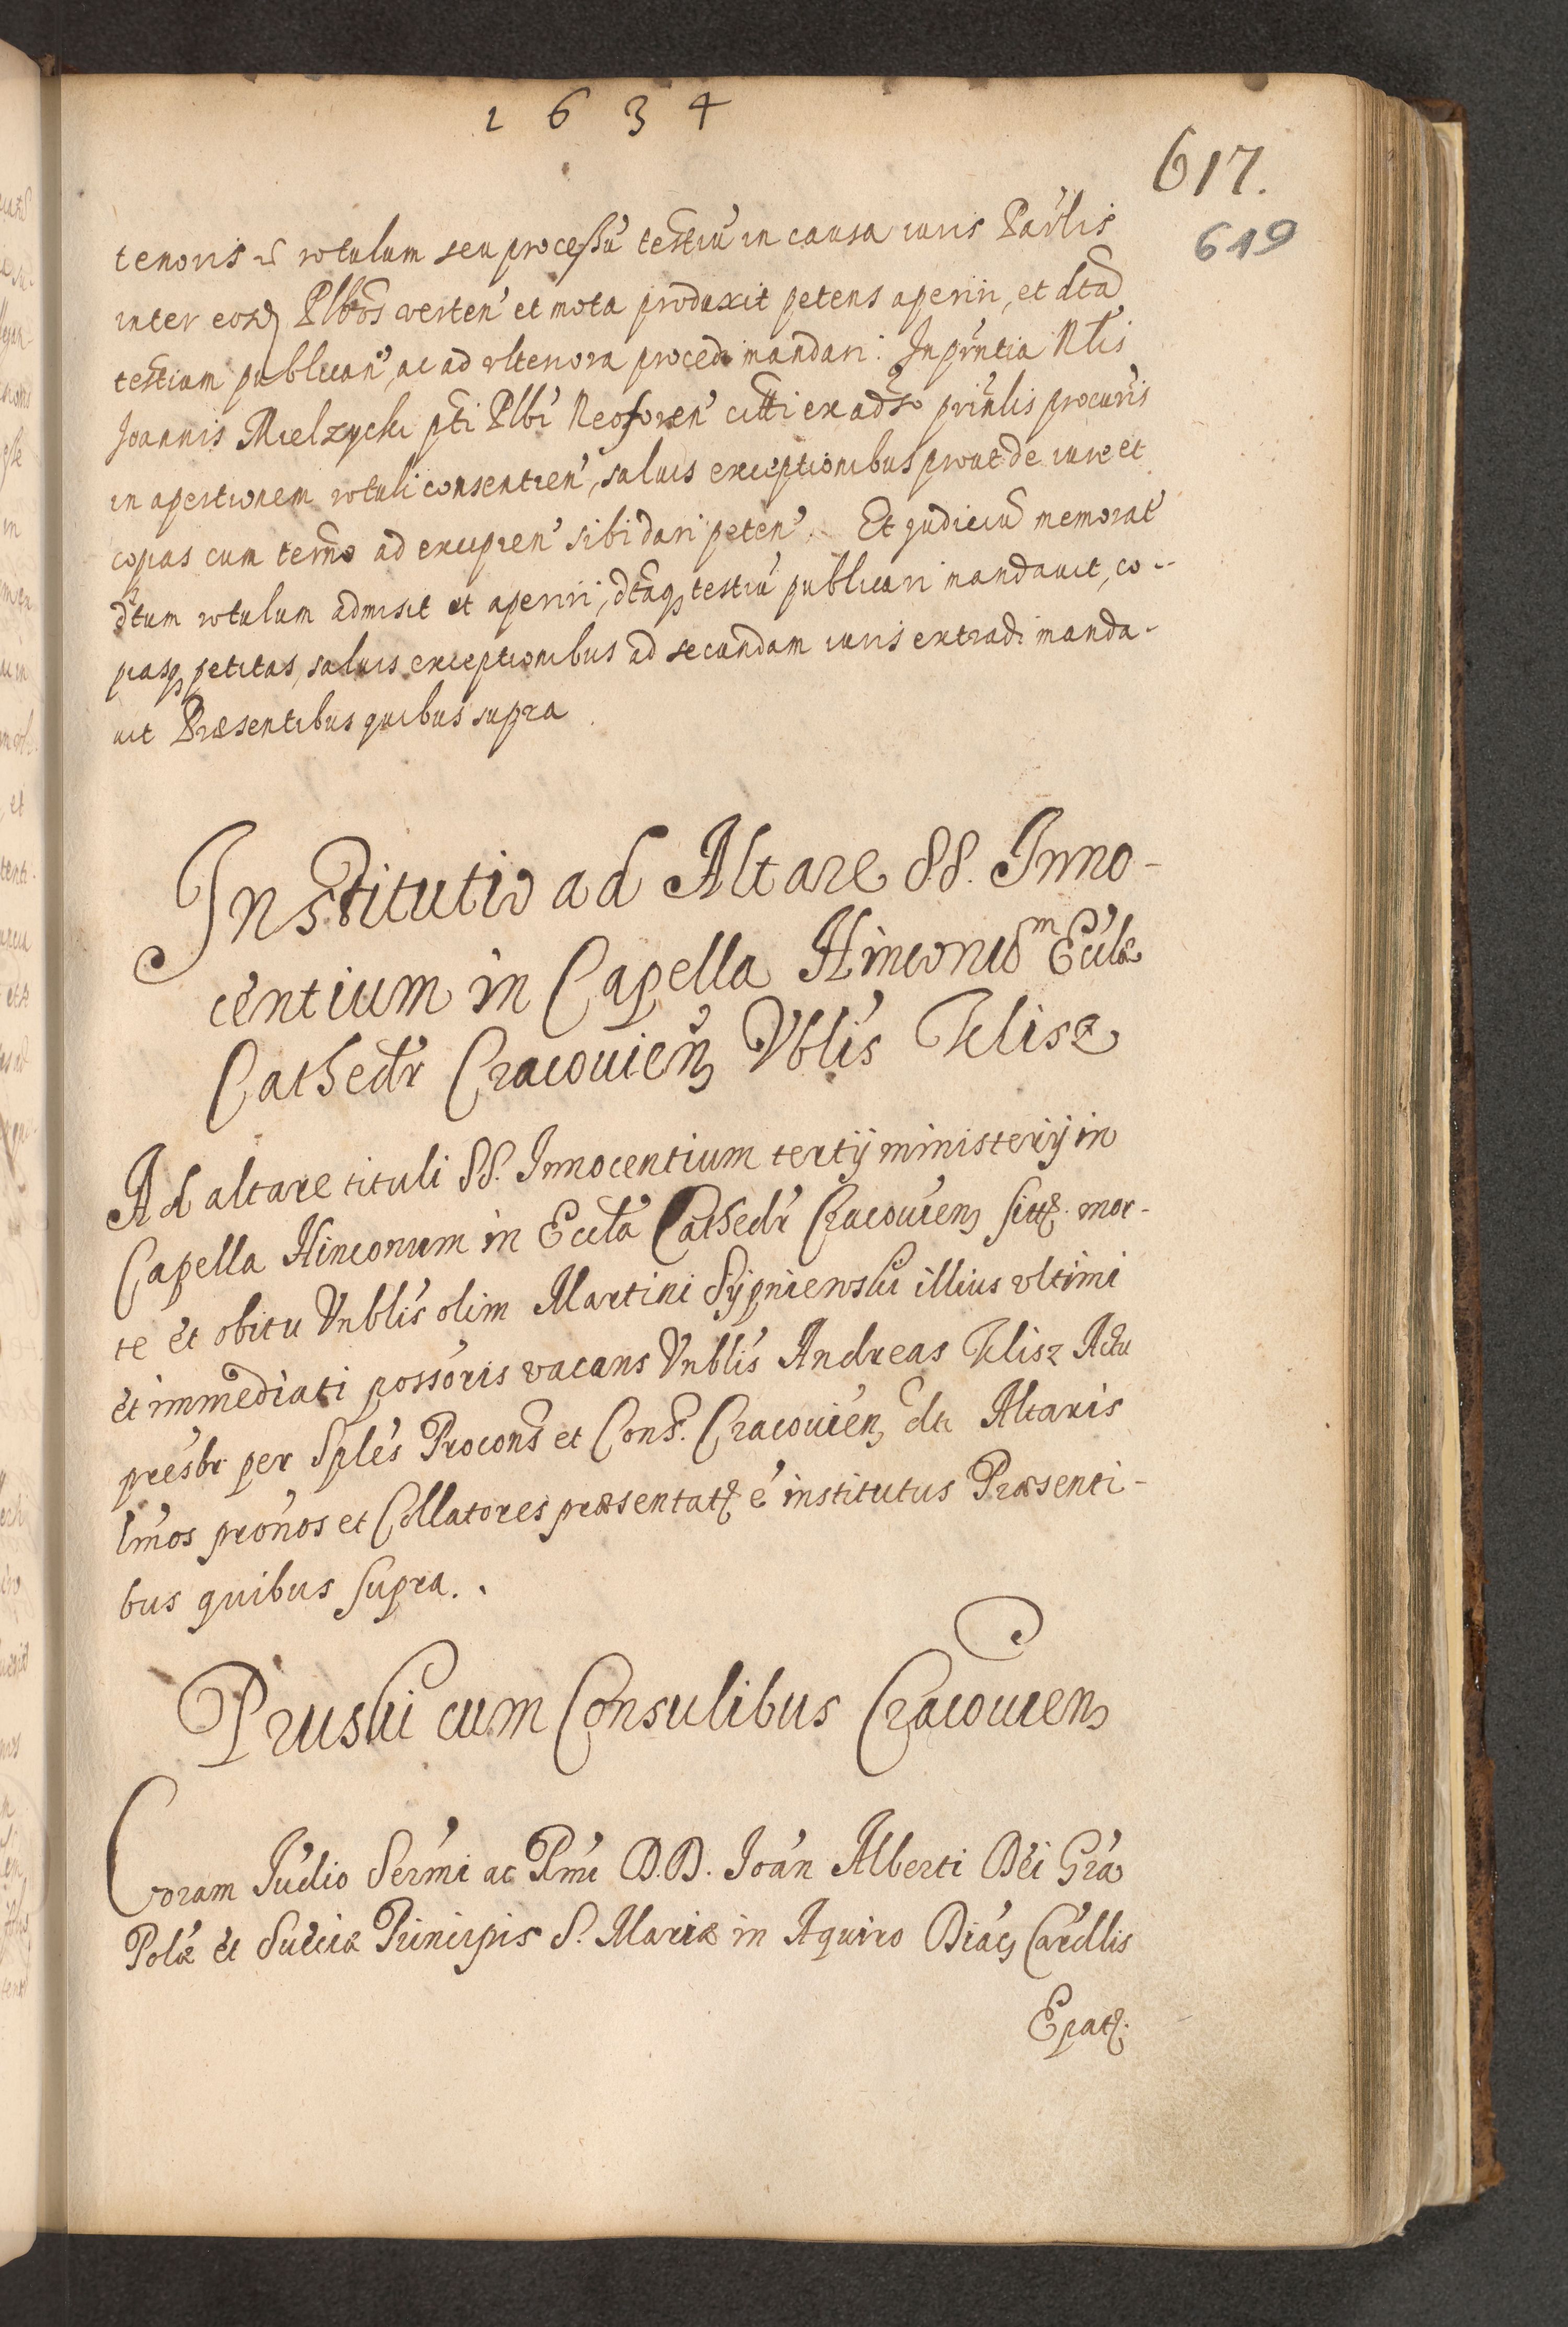 1 6 3 4
617.
619
tenoris rotulum seu processũ testiũ in causa iuris Parlis
inter eosd Plbos verten̓ et mota produxit petens aperiri, et dta
testium publicari, ac ad vlteriora procedi mandari. In pñtia Nlis
Joannis Mielzycki pti Plbi Neoforen̓ citti ex adso prinlis procuris
in apertionem rotuli consentien̓, saluis exceptionibus prout de iure et
copias cum termo ad excipien̓ sibi dari peten̓. Et Judiciũ memorat̓
dtum rotulum admisit et aperiri, dtaq testiũ publicari mandauit, co-
piasq petitas, saluis exceptionibus ad secundam iuris extradi manda-
uit Præsentibus quibus supra.
Institutio ad Altare SS. Inno-
centium in Capella Hinconum Eccłæ
Cathedr̓ Cracouien Vblis Klisz
Ad altare tituli SS. Innocentium tertij ministerij in
Capella Hinconum in Eccła Cathedr̓ Cracouien sitt. mor-
te et obitu Vnblis olim Martini Sypniewski illius vltimi
et immediati possoris vacans Vnblis Andreas Klisz Actu
presbr per Sples Procons et Cons. Cracouien dti Altaris
lmos pronos et Collatores præsentat ẽ institutus Præsenti-
bus quibus supra..
Pruski cum Consulibus Cracouien
Coram Judio Sermi ac Rmi D.D. Joan Alberti Dei Gra
Polæ et Sueciæ Principis S. Mariæ in Aquiro Diac Cardlis
Epat.